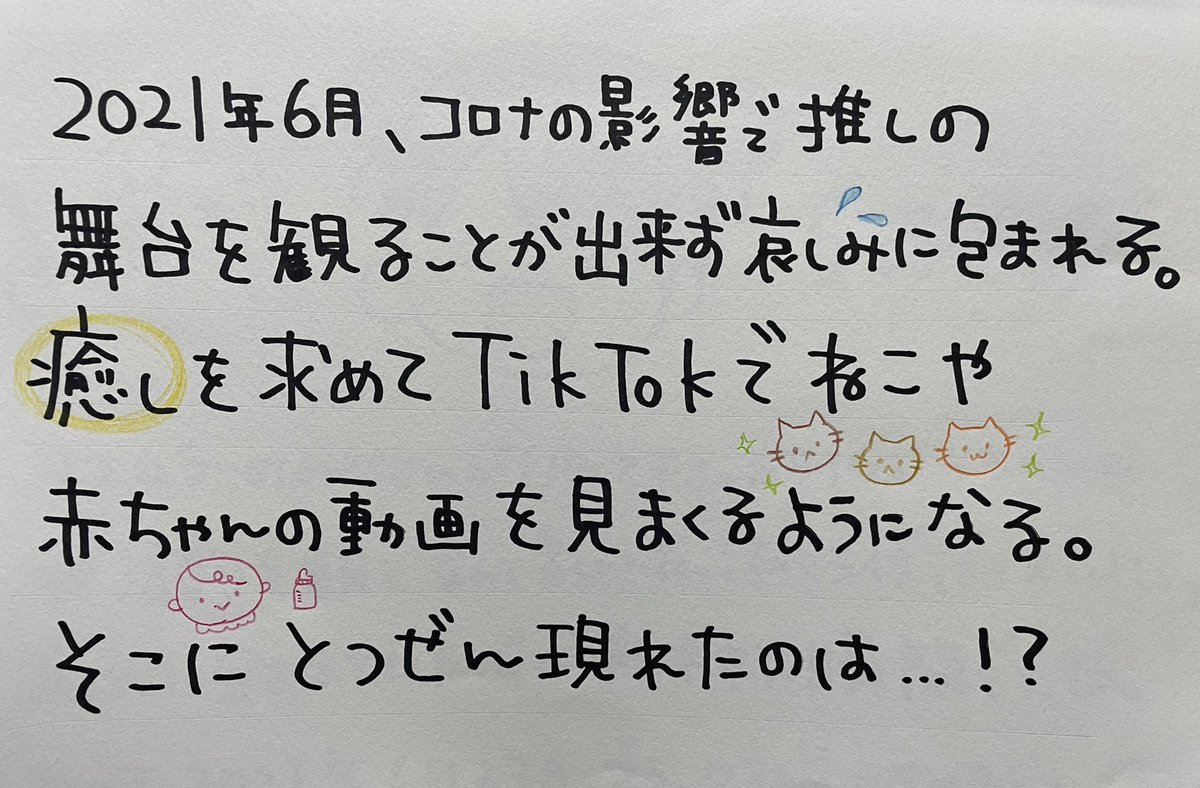 2021年6月、コロナの影響で推しの
舞台を観ることが出来ず哀しみに包まれる。
癒しを求めてTikTokでねこや
赤ちゃんの動画を見まくるようになる。
そこにとつぜん現れたのは…!?